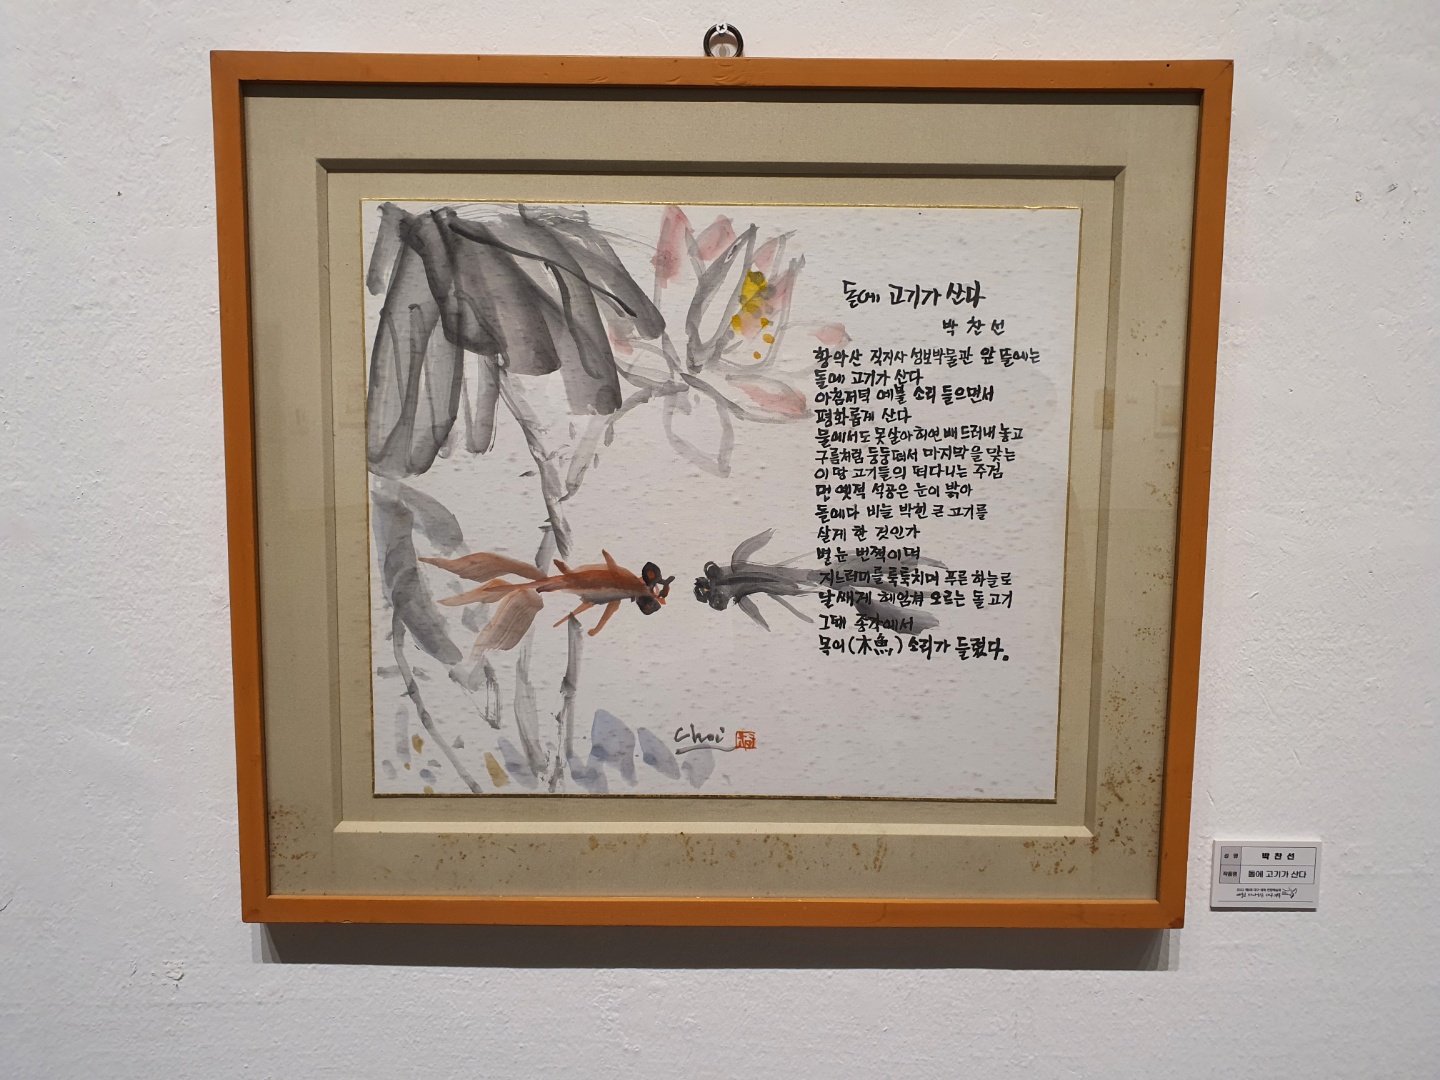 돌에 고기가 산다
박찬선
황악산 직지사 성보박물관 앞 뜰에는
돌에 고기가 산다
아침저녁 예불 소리 들으면서
평화롭게 산다
물에서도 못살아 허연 배 드러내 놓고
구름처럼 둥둥 떠서 마지막을 맞는
이 땅 고기들의 떠다니는 주검
먼 옛적 석공은 눈이 밝아
돌에다 비늘 박힌 큰 고기를
살게 한 것인가
별 눈 번쩍이며
지느러미를 툭툭치며 푸른 하늘로
날쌔게 헤엄쳐 오르는 돌고기
그때 종각에서
목어(木魚) 소리가 들렸다.
Choi
성 명 박 찬 선
작품명 돌에 고기가 산다